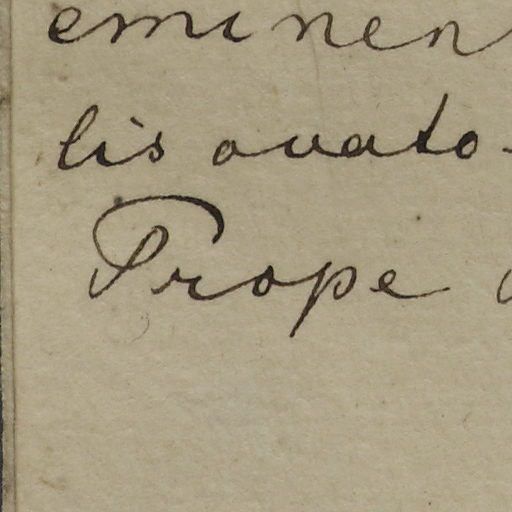 eminen
lis ovato-
Prope